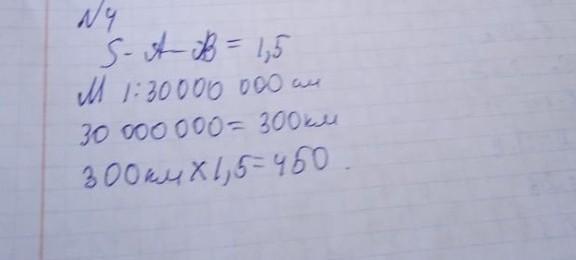 N4
S - A - B = 1,5
М 1:30000 000 см
30 000 000 = 300 км
300 км х 1,5 = 450.